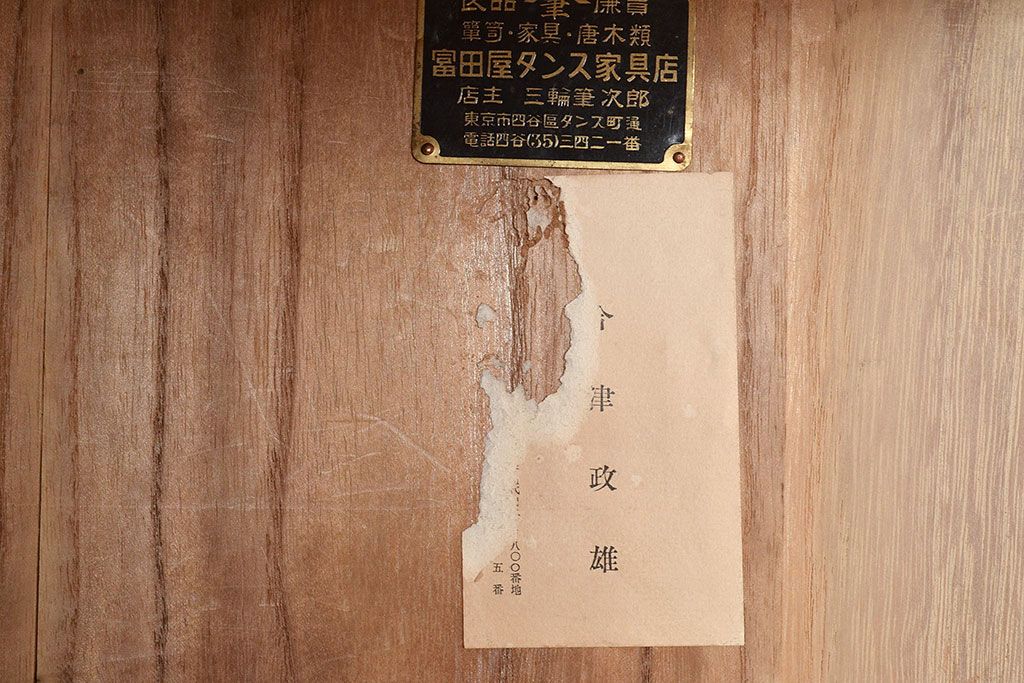 良品 筆 廉賣
簞笥・家具・唐木類
富田屋タンス家具店
店主 三輪筆次郎
東京市四谷區タンス町通
電話四谷(35)三四二一番
津政雄
八〇〇番地
五番